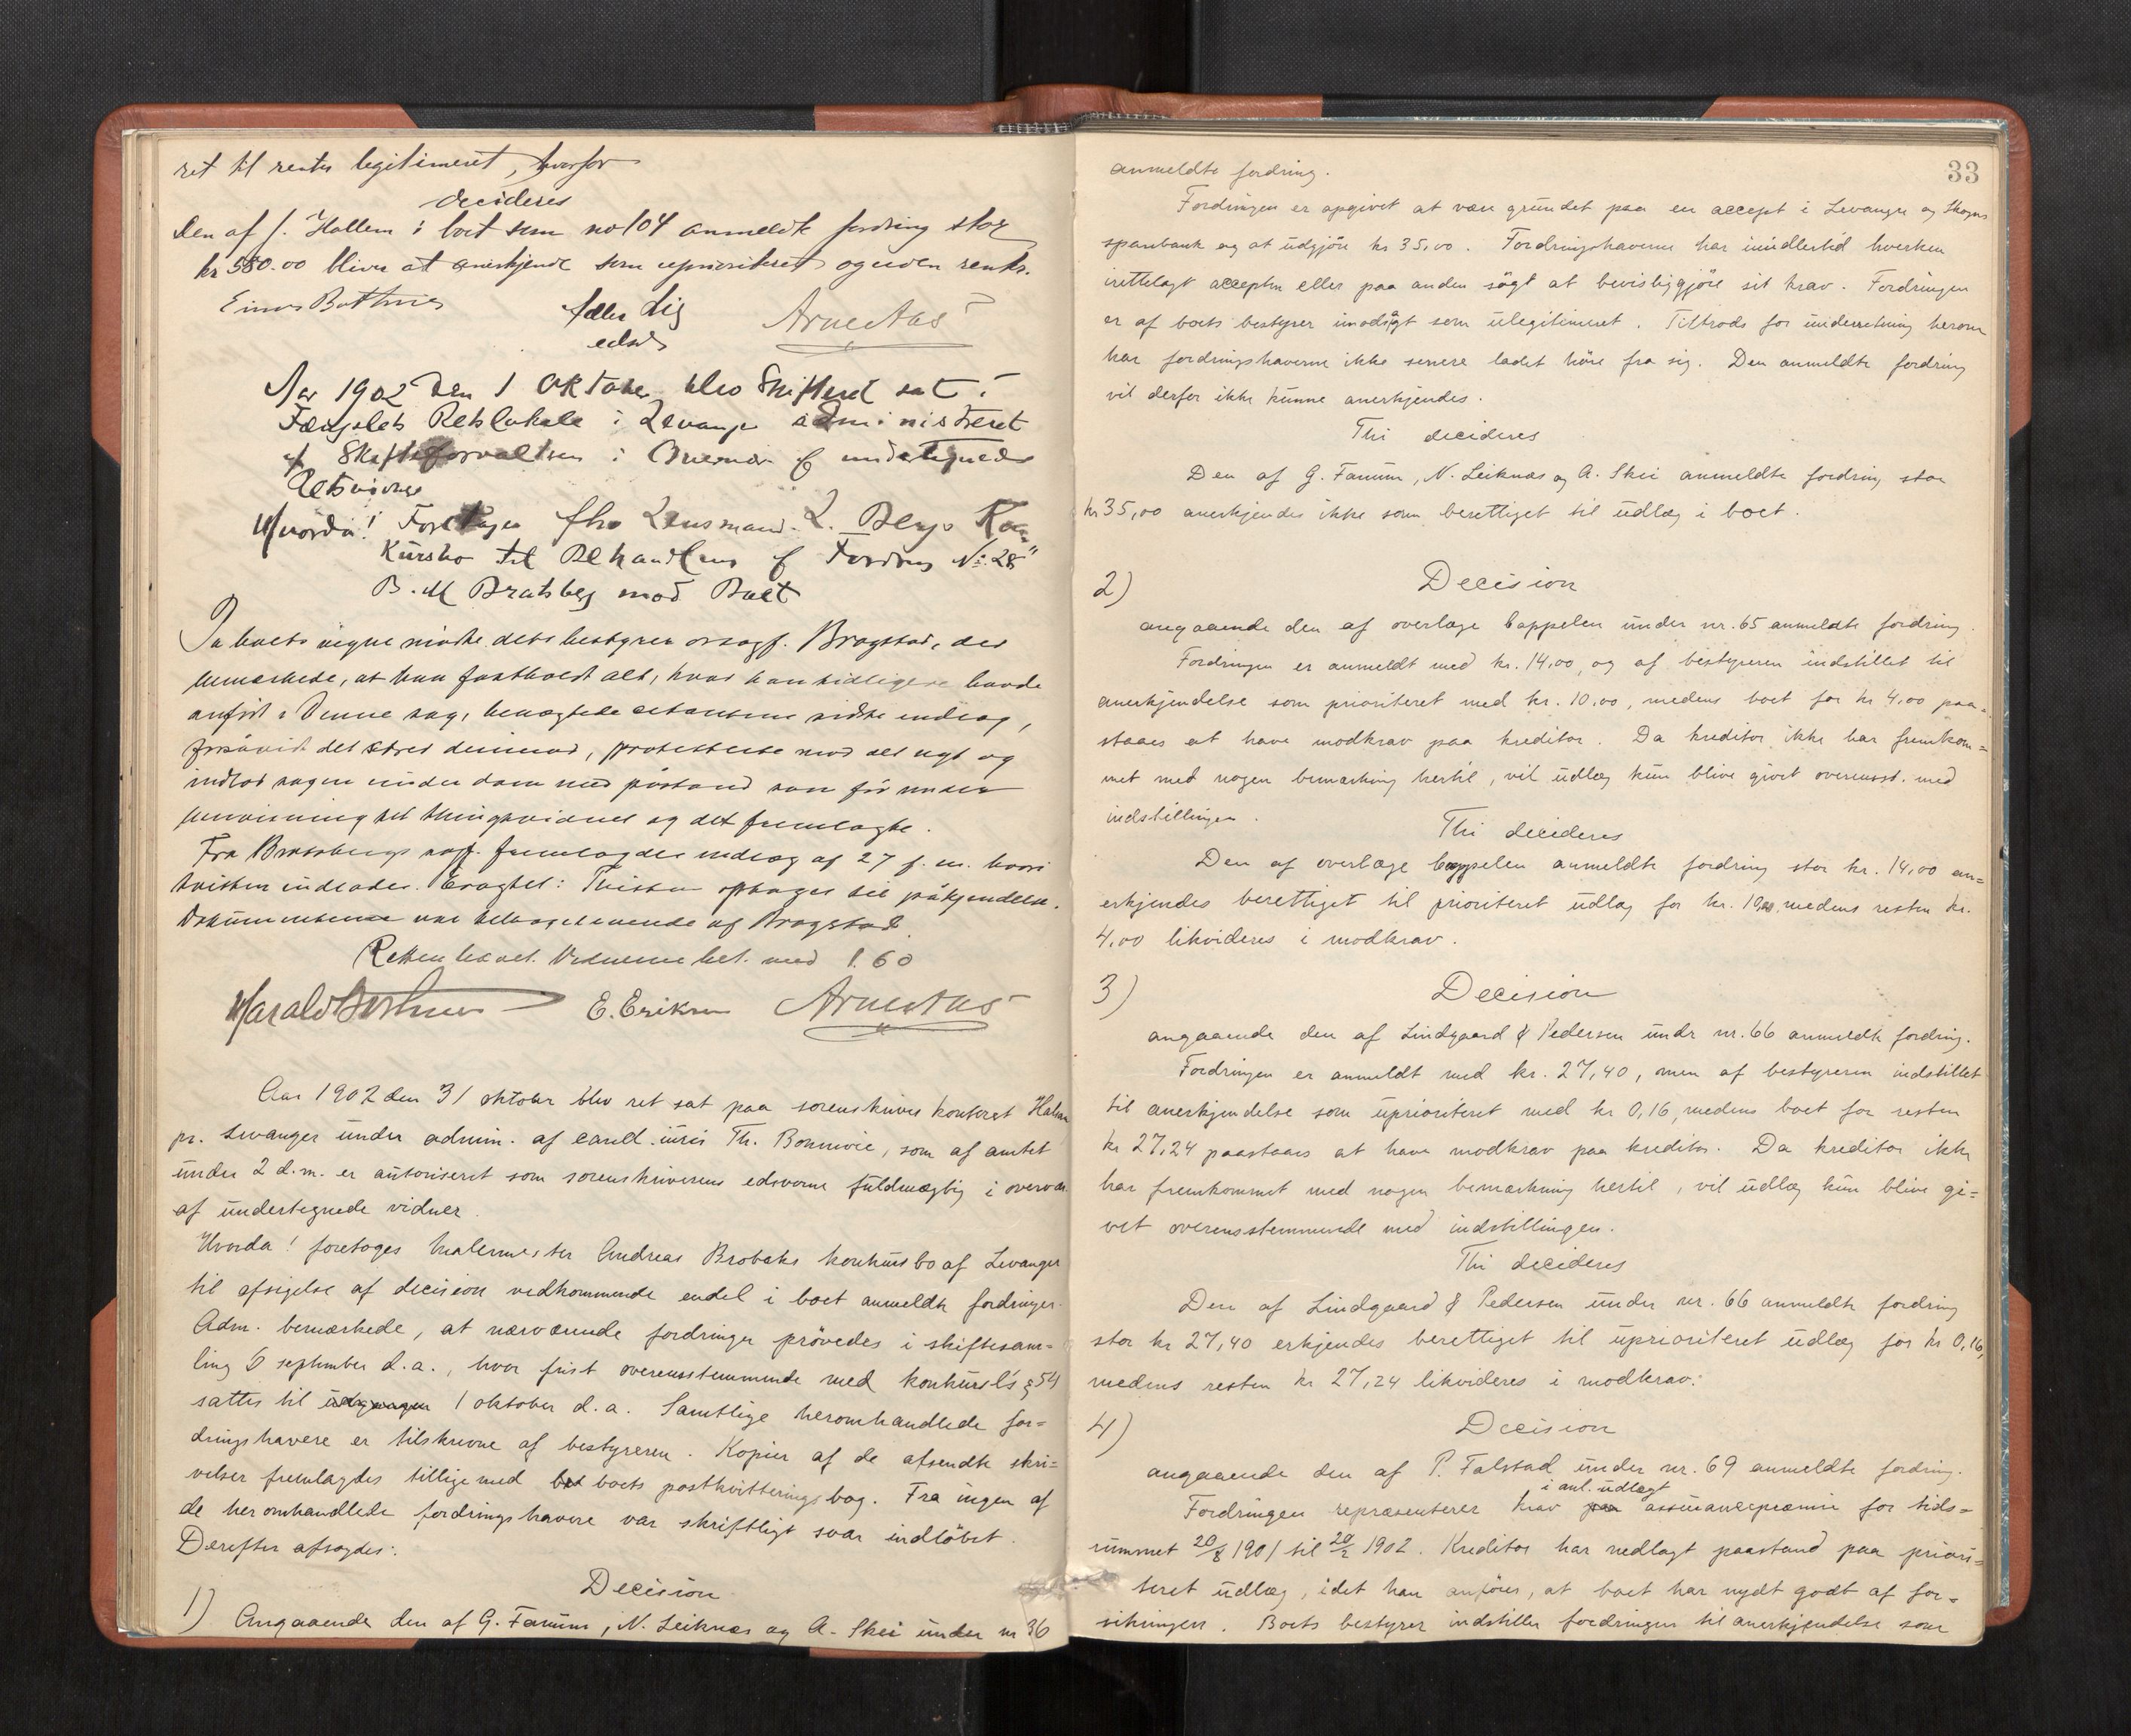 ret til renter legitimeret, hvorfor
decideres
Den af J. Hallem i boet som no 104 anmeldte fordring stor
kr 580.00 bliver at anerkjende som uprioriteret og uden rente.
Einar Bothner
edsv.
Aar 1902 den 1 Oktober blev Skifteret sat i
Fængslets Retslokale i Levanger administreret
af Skifteforvalteren i Overvær af undertegnede
Retsvidner
Hvorda! Foretages Lensmand L. Bergs Kon
kursbo til Behandling af Fordring No. 28"
B. M Bratsberg mod Boet
Paa boets vegne mødte dets bestyrer orsagf. Bragstad, der
bemærkede, at han fastholdt alt, hvad han tidligere havde
anført i denne sag, benægtede citantens sidste indlæg,
forsåvidt det stred derimod, protesterte mod det nyt og
indlod sagen under dom med påstand som før under
henvisning til thingsvidnet og det fremlagte.
Fra Bratsbergs sagf. fremlagdes indlæg af 27 f. m. hvori
tvisten indlades. Eragtet: Tvisten optages til påkjendelse.
Dokumenterne var af Bragstad.
Retten hævet. Vidnerne bet. med 1.60
Harald Bothner E. Eriksen
Aar 1902 den 31 oktober blev ret sat paa sorenskriver kontoret
pr. Levanger under admin. af cand. juris Th. Bonnevie, som af amtet
under 2 d.m. er autoriseret som sorenskriverens edsvorne fuldmægtig i overvær
af undertegnede vidner.
Hvorda! foretoges malermester Andreas Brobaks konkursbo af Levanger
til afsigelse af decision vedkommende endel i boet anmeldte fordringer.
Adm. bemærkede, at nærværende fordringer prövedes i skiftesam=
ling 6 september d.a., hvor frist overensstemmende med konkursl's § 54
sattes til udgangen 1 oktober d.a. Samtlige heromhandlede for=
dringshavere er tilskrevne af bestyreren. Kopier af de afsendte skri=
velser fremlagdes tilligemed bet boets postkvitteringsbog. Fra ingen af
de heromhandlede fordringshavere var skriftligt svar indlöbet.
Derefter afsagdes:
Decision
1) Angaaende den af G. Fanum, N. Leiknæs og A. Skei under nr 36
33
anmeldte fordring.
Fordringen er opgivet at være grundet paa en accept i Levanger og Skogns
sparebank og at udgjöre kr 35,00. Fordringshaverne har imidlertid hverken
irettelagt accepten eller paa anden sögt at bevisliggjöre sit krav. Fordringen
er af boets bestyrer imodsagt som ulegitimeret. Tiltrods for underretning herom
har fordringshaverne ikke senere ladet höre fra sig. Den anmeldte fordring
vil derfor ikke kunne anerkjendes.
Thi decideres
Den af G. Fanum, N. Leiknæs og A. Skei anmeldte fordring stor
kr 35,00 anerkjendes ikke som berettiget til udlæg i boet.
2) Decision
angaaende den af overlæge Cappelen under nr. 65 anmeldte fordring.
Fordringen er anmeldt med kr. 14,00, og af bestyreren indstillet til
anerkjendelse som prioriteret med kr. 10,00, medens boet for kr 4,00 paa=
staaes at have modkrav paa kreditor. Da kreditor ikke har fremkom=
met med nogen bemærkning hertil, vil udlæg kun blive givet overensst. med
indstillingen.
Thi decideres
Den af overlæge Cappelen anmeldte fordring stor kr. 14,00 an=
erkjendes berettiget til prioriteret udlæg for kr. 10,00 medens resten kr.
4,00 likvideres i modkrav.
3) Decision
angaaende den af Lindgaard & Pedersen undr nr. 66 anmeldte fordring.
Fordringen er anmeldt med kr. 27,40, men af bestyreren indstillet
til anerkjendelse som uprioriteret med kr 0,16, medens boet for resten
kr 27,24 paastaaes at have modkrav paa kreditor. Da kreditor ikke
har fremkommet med nogen bemærkning hertil, vil udlæg kun blive gi=
vet overensstemmende med indstillingen.
Thi decideres
Den af Lindgaard & Pedersen under nr. 66 anmeldte fordring
stor kr 27,40 erkjendes berettiget til uprioriteret udlæg for kr 0,16,
medens resten kr 27,24 likvideres i modkrav.
4) Decision
angaaende den af P. Falstad under nr. 69 anmeldte fordring.
i anl. udlagt
Fordringen repræsenterer krav paa assurancepræmie for tids=
rummet 20/8 1901 til 20/2 1902. Kreditor har nedlagt paastand paa priori=
teret udlæg, idet han anförer, at boet har nydt godt af for=
sikringen. Boets bestyrer indstiller fordringen til anerkjendelse som